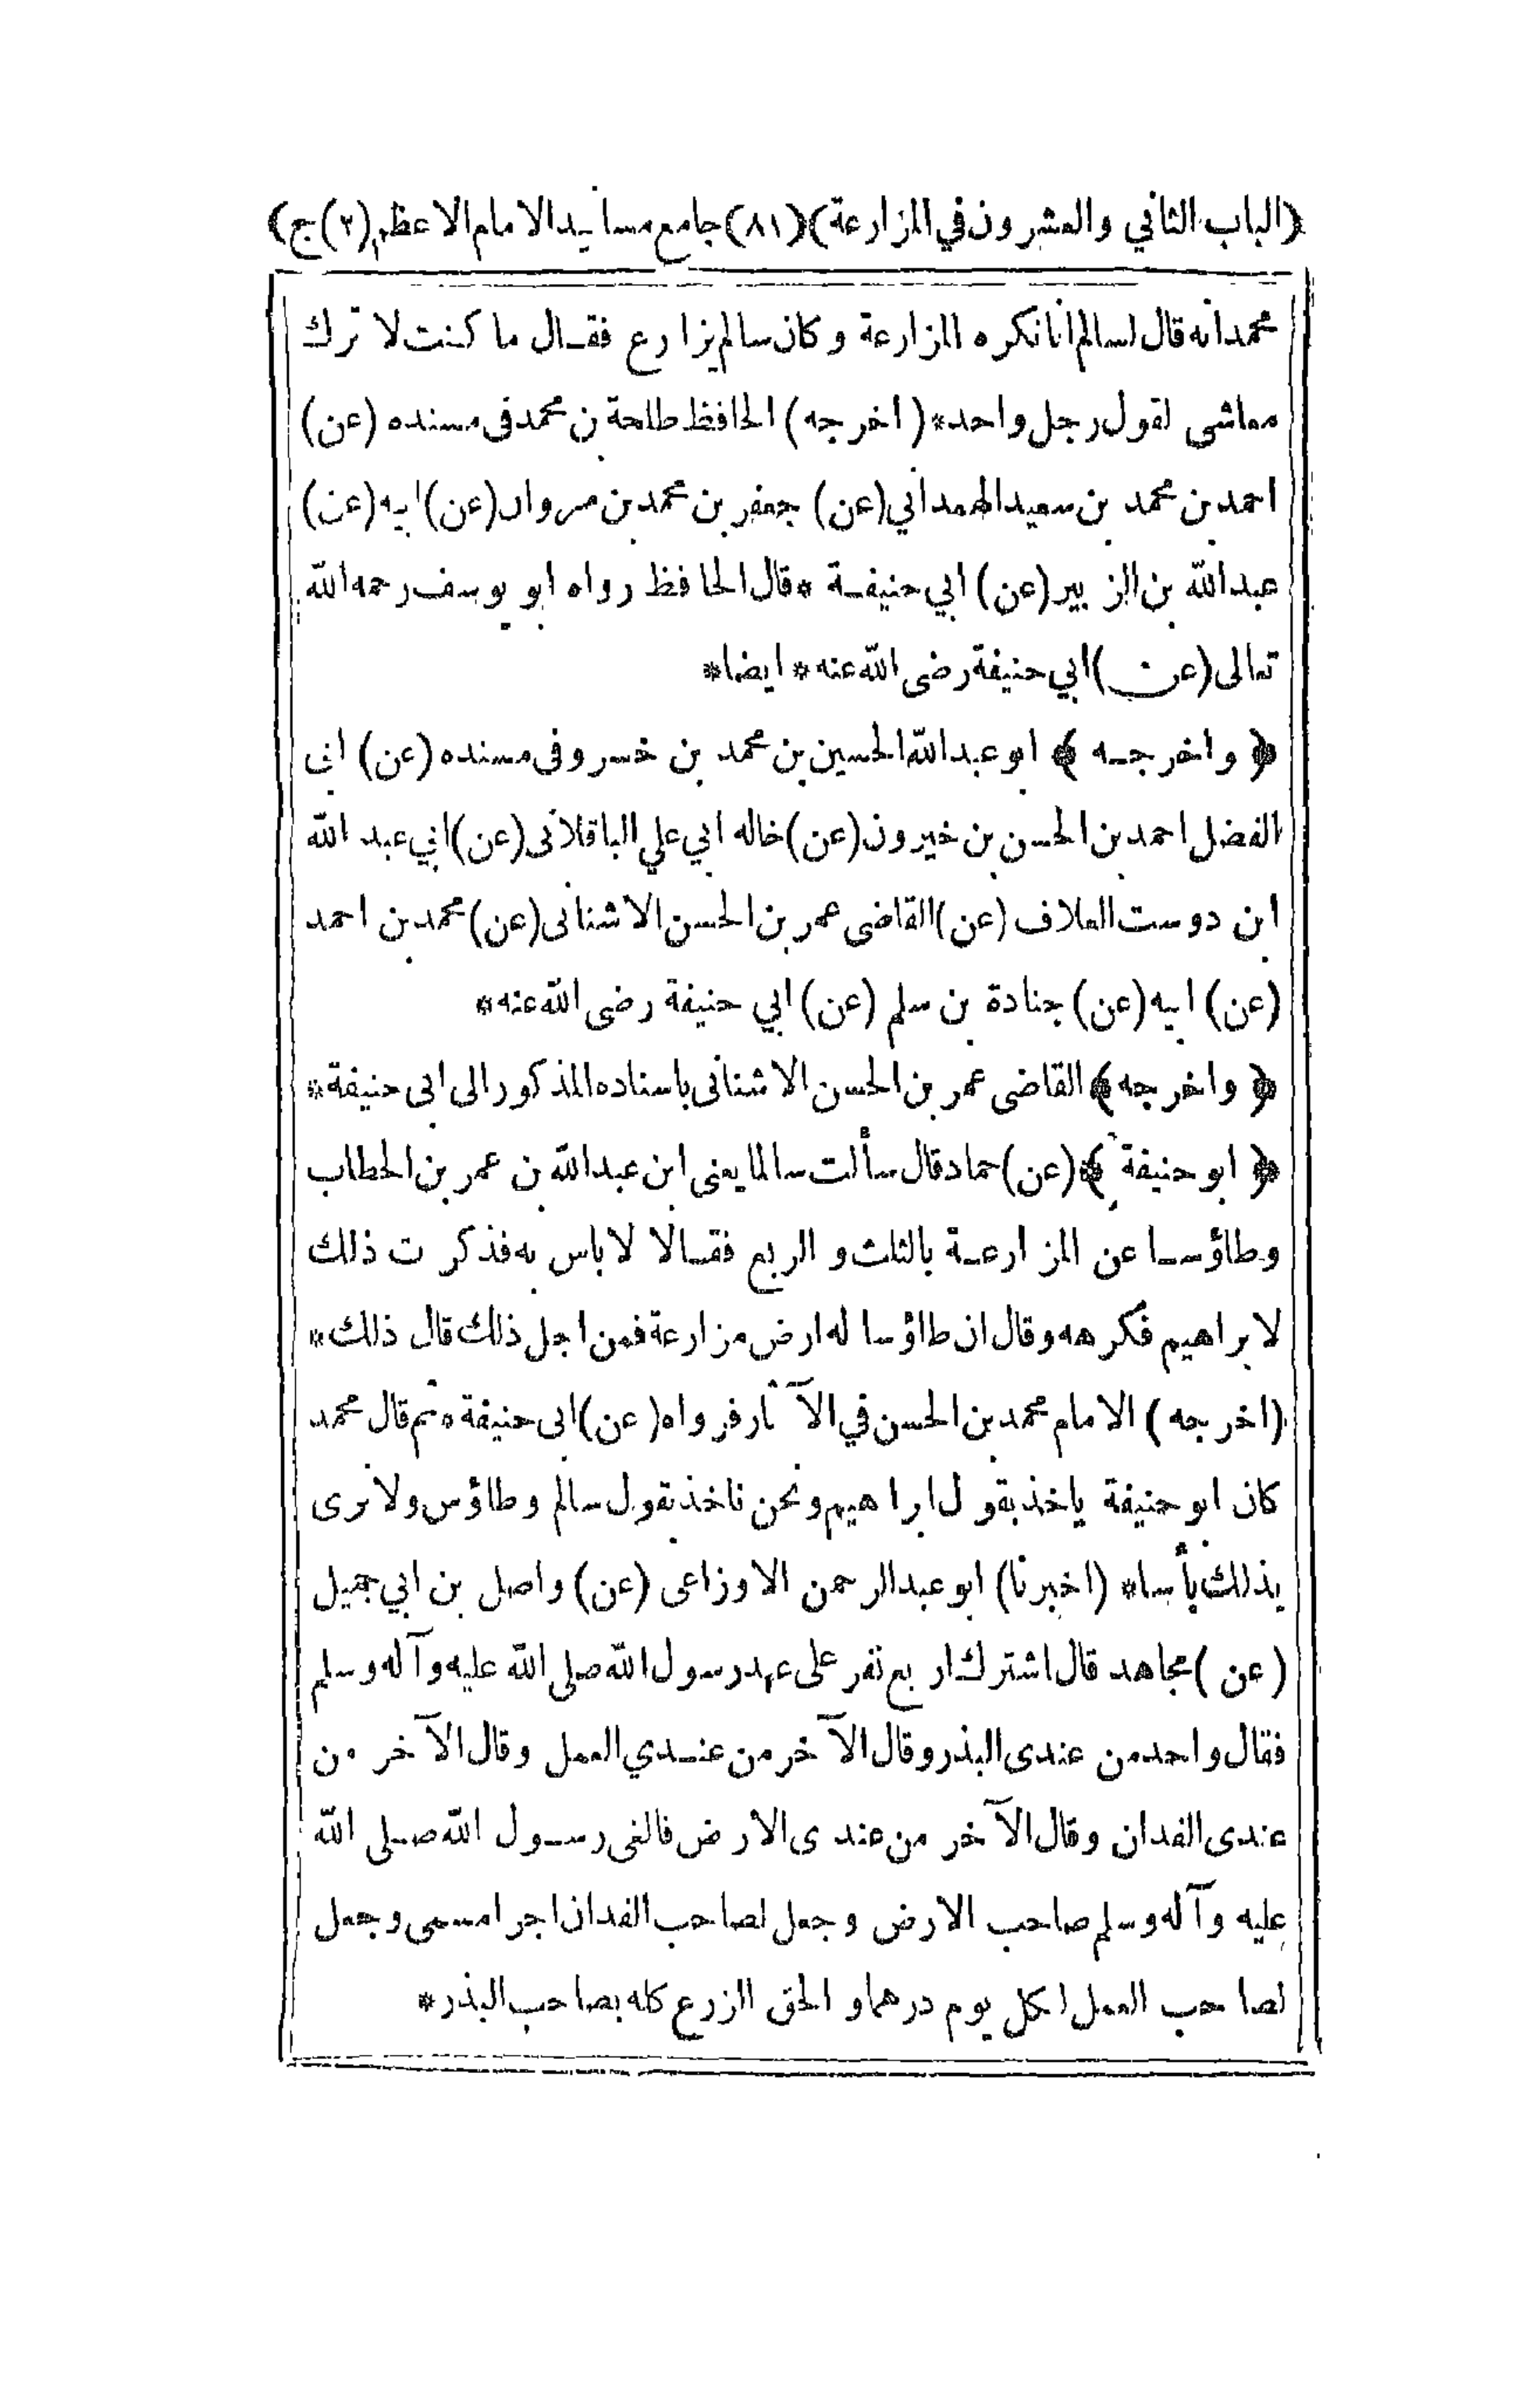 (الباب الثاني والعشرون في المزارعة) (٨١) جامع مسانيد الامام الاعظم (٢) ج)
محمد انه قال لسالم انا نكره المزارعة وكان سالم يزارع فقال ما كنت لا ترك
معاشى لقول رجل واحد* (اخرجه) الحافظ طلحة بن محمد فى مسنده (عن)
احمد بن محمد بن سعيد الهمداني (عن) جعفر بن محمد بن مروان (عن) ابيه (عن)
عبد الله بن الزبير (عن) ابي حنيفة *قال الحافظ رواه ابو يوسف رحمه الله
تعالى (عن) ابي حنيفة رضى الله عنه* ايضا*
﴿ واخرجه ﴾ ابو عبد الله الحسين بن محمد بن خسرو فى مسنده (عن) ابى
الفضل احمد بن الحسن بن خيرون (عن) خاله ابي علي الباقلانى (عن) ابي عبد الله
ابن دوست العلاف (عن) القاضى عمر بن الحسن الاشنانى (عن) محمد بن احمد
(عن) ابيه (عن) جنادة بن سلم (عن) ابي حنيفة رضى الله عنه*
﴿ واخرجه ﴾ القاضى عمر بن الحسن الاشنانى باسناده المذكور الى ابى حنيفة*
﴿ ابو حنيفة ﴾ (عن) حماد قال سألت سالما يعنى ابن عبد الله بن عمر بن الخطاب
وطاؤسا عن المزارعة بالثلث والربع فقالا لا باس به فذكرت ذلك
لابراهيم فكرهه وقال ان طاؤسا له ارض مزارعة فمن اجل ذلك قال ذلك*
(اخرجه) الامام محمد بن الحسن في الآثار فرواه (عن) ابى حنيفة* ثم قال محمد
كان ابو حنيفة ياخذ بقول ابراهيم ونحن ناخذ بقول سالم وطاؤس ولا نرى
بذلك بأسا* (اخبرنا) ابو عبد الرحمن الاوزاعى (عن) واصل بن ابي جميل
(عن) مجاهد قال اشترك اربع نفر على عهد رسول الله صلى الله عليه وآله وسلم
فقال واحد من عندى البذر وقال الآخر من عندي العمل وقال الآخر من
عندى الفدان وقال الآخر من عندى الارض فالغى رسول الله صلى الله
عليه وآله وسلم صاحب الارض وجعل لصاحب الفدان اجرا مسمى وجعل
لصاحب العمل لكل يوم درهما والحق الزرع كله بصاحب البذر*